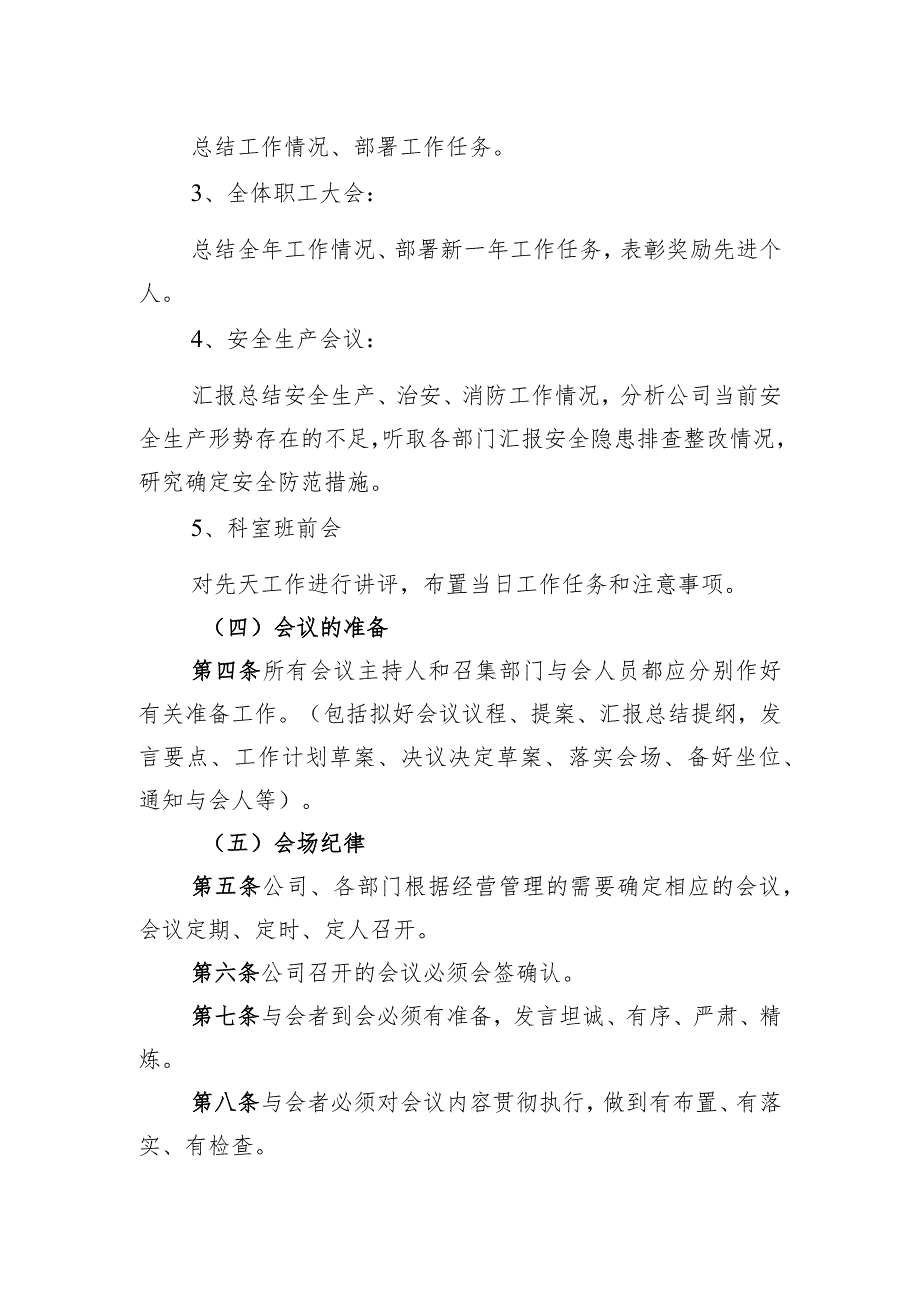 总结工作情况、部署工作任务。
3、全体职工大会：
总结全年工作情况、部署新一年工作任务，表彰奖励先进个
人。
4、安全生产会议：
汇报总结安全生产、治安、消防工作情况，分析公司当前安
全生产形势存在的不足，听取各部门汇报安全隐患排查整改情况，
研究确定安全防范措施。
5、科室班前会
对先天工作进行讲评，布置当日工作任务和注意事项。
（四）会议的准备
第四条所有会议主持人和召集部门与会人员都应分别作好
有关准备工作。（包括拟好会议议程、提案、汇报总结提纲，发
言要点、工作计划草案、决议决定草案、落实会场、备好坐位、
通知与会人等）。
（五）会场纪律
第五条公司、各部门根据经营管理的需要确定相应的会议，
会议定期、定时、定人召开。
第六条公司召开的会议必须会签确认。
第七条与会者到会必须有准备，发言坦诚、有序、严肃、精
炼。
第八条与会者必须对会议内容贯彻执行，做到有布置、有落
实、有检查。